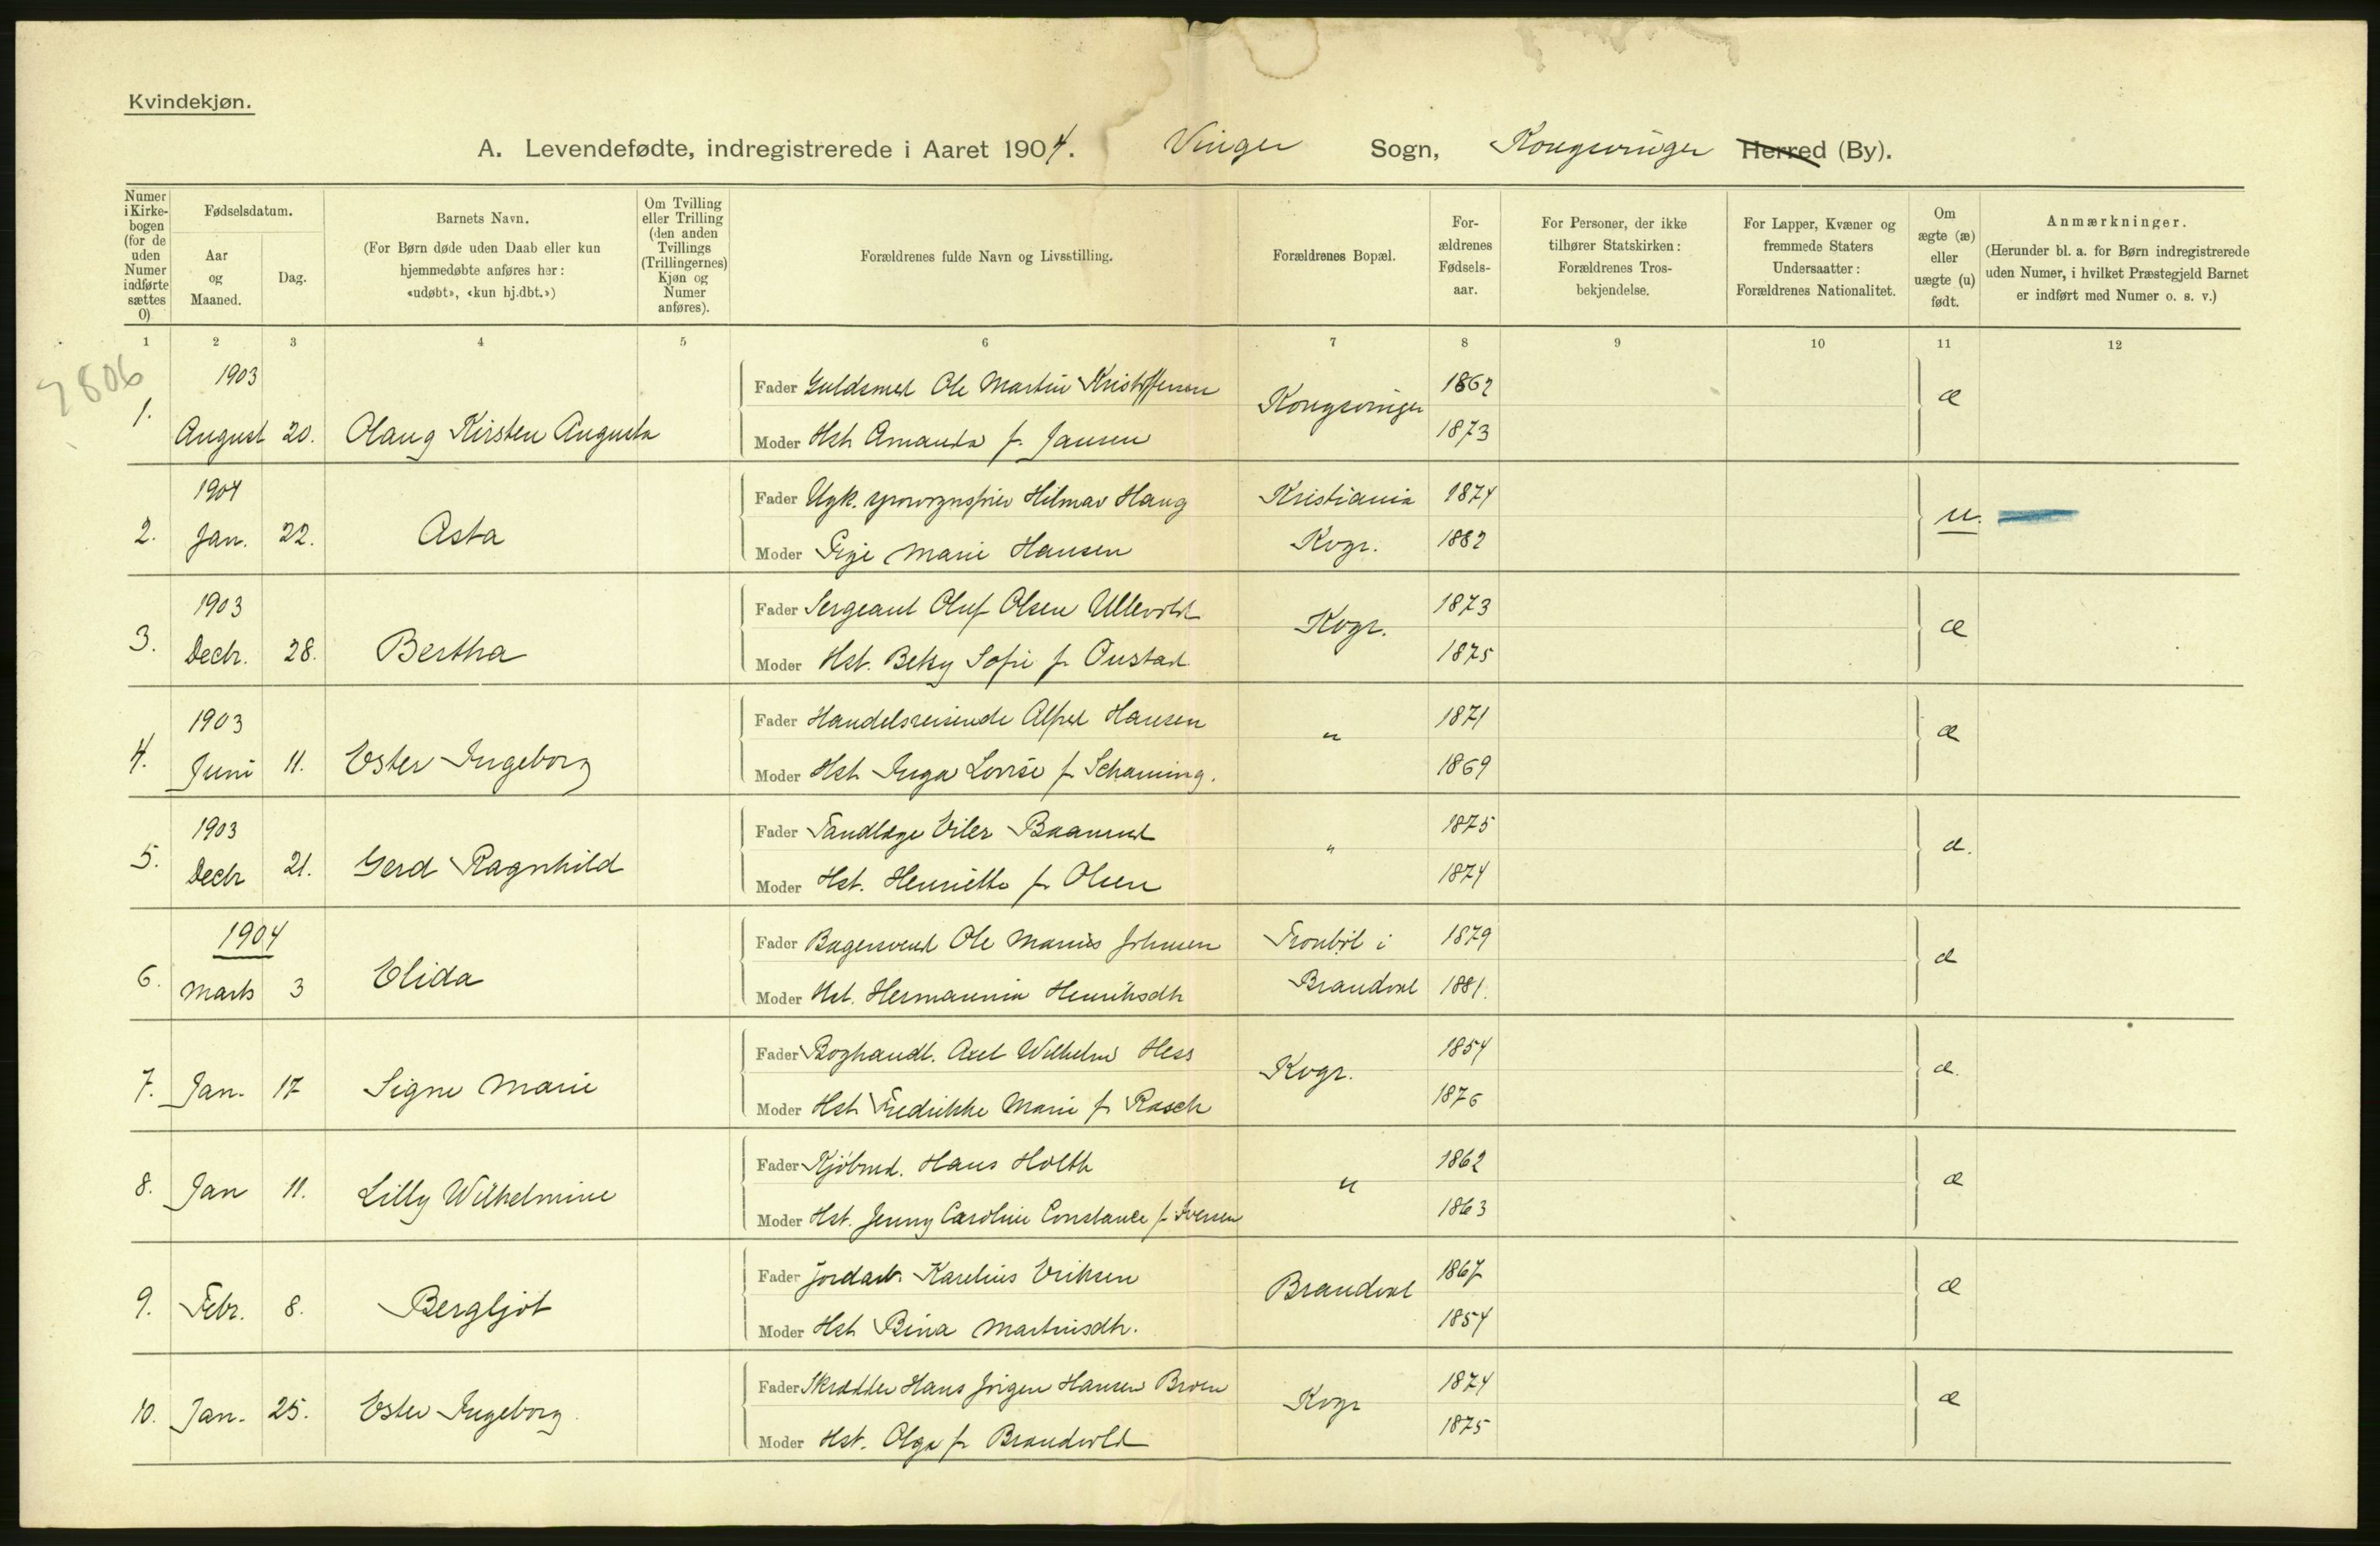 Kvindekjøn.
A. Levendefødte, indregistrerede i Aaret 1904. Vinger Sogn, Kongsvinger Herred (By).
Numer i Kirke-bogen (for de uden Numer indførte sættes 0)
Fødselsdatum.
Aar og Maaned.
Dag.
Barnets Navn.
(For Børn døde uden Daab eller kun hjemmedøbte anføres her: «udøbt», «kun hj.dbt.»)
Om Tvilling eller Trilling (den anden Tvillings (Trillingernes) Kjøn og Numer anføres).
Forældrenes fulde Navn og Livsstilling.
Forældrenes Bopæl.
For-ældrenes Fødsels-aar.
For Personer, der ikke tilhører Statskirken: Forældrenes Tros-bekjendelse.
For Lapper, Kvæner og fremmede Staters Undersaatter: Forældrenes Nationalitet.
Om ægte (æ) eller uægte (u) født.
Anmærkninger.
(Herunder bl. a. for Børn indregistrerede uden Numer, i hvilket Præstegjeld Barnet er indført med Numer o. s. v.)
1 2 3 4 5 6 7 8 9 10 11 12
7806
1903
Fader Guldsmed Ole Martin Kristoffersen Kongsvinger 1862 æ
1. August 20. Olaug Kirsten Augusta
Moder Hst Amanda f. Jansen 1873
1904
Fader Ugk. Hilmar Haug Kristiania 1874 u.
2. Jan. 22. Asta
Moder Pige Marie Hansen Kvgr. 1882
1903
Fader Sergeant Oluf Olsen Ullevold Kvgr. 1873 æ
3. Decbr. 28. Bertha
Moder Hst. Betsy Sofie f. Oustad 1875
1903
Fader Handelsreisende Alfred Hansen " 1871 æ
4. Juni 11. Ester Ingeborg
Moder Hst Inga Lovise f. Schaming. 1869
1903
Fader Tandlæge Eiler Baanrud " 1875 æ.
5. Decbr 21. Gerd Ragnhild
Moder Hst. Henriette f. Olsen 1874
1904
Fader Bagersvend Ole Marius Johnsen Tronbøl i 1879 æ
6. Marts 3 Elida
Moder Hst. Hermannia Henriksdtr Brandval 1881.
Fader Boghandl. Axel Wilhelm Hess Kvgr. 1854 æ.
7. Jan. 17 Signe Marie
Moder Hst Fredrikke Marie f. Rasch 1876
Fader Kjøbmd. Hans Holth " 1862 æ
8. Jan 11. Lilly Wilhelmine
Moder Hst. Jenny Caroline Constance f. Iversen 1863
Fader Jordarb. Karelius Eriksen Brandval 1867 æ
9. Febr. 8. Bergljot
Moder Hst Bina Martinsdtr. 1854
Fader Skrædder Hans Jørgen Hansen Broen Kvgr 1874 æ
10. Jan. 25. Ester Ingeborg.
Moder Hst. Olga f. Brandvold 1875